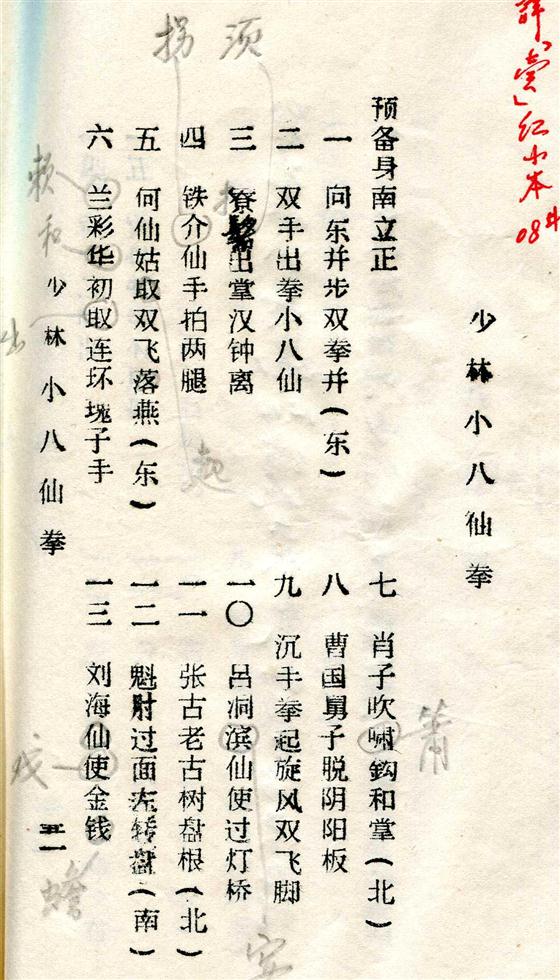 详「卖」红小本
08年
少林小八仙拳
预备身南立正
一 向东并步双拳并(东)
二 双手出拳小八仙
三 出堂汉钟离
四 铁介仙手拍两腿
五 何仙姑取双飞落燕(东)
六 兰彩华初取连环塊子手
七 肖子吹啸鈎和堂(北)
八 曹国舅子脱阴阳板
九 沉手拳起旋风双飞脚
一〇 吕洞滨仙使过灯桥
一一 张古老古树盘根(北)
一二 魁肘过面左转盘(南)
一三 刘海仙使金钱
少林小八仙拳
须
拐
赖
和
出
起
箫
戏
蟾